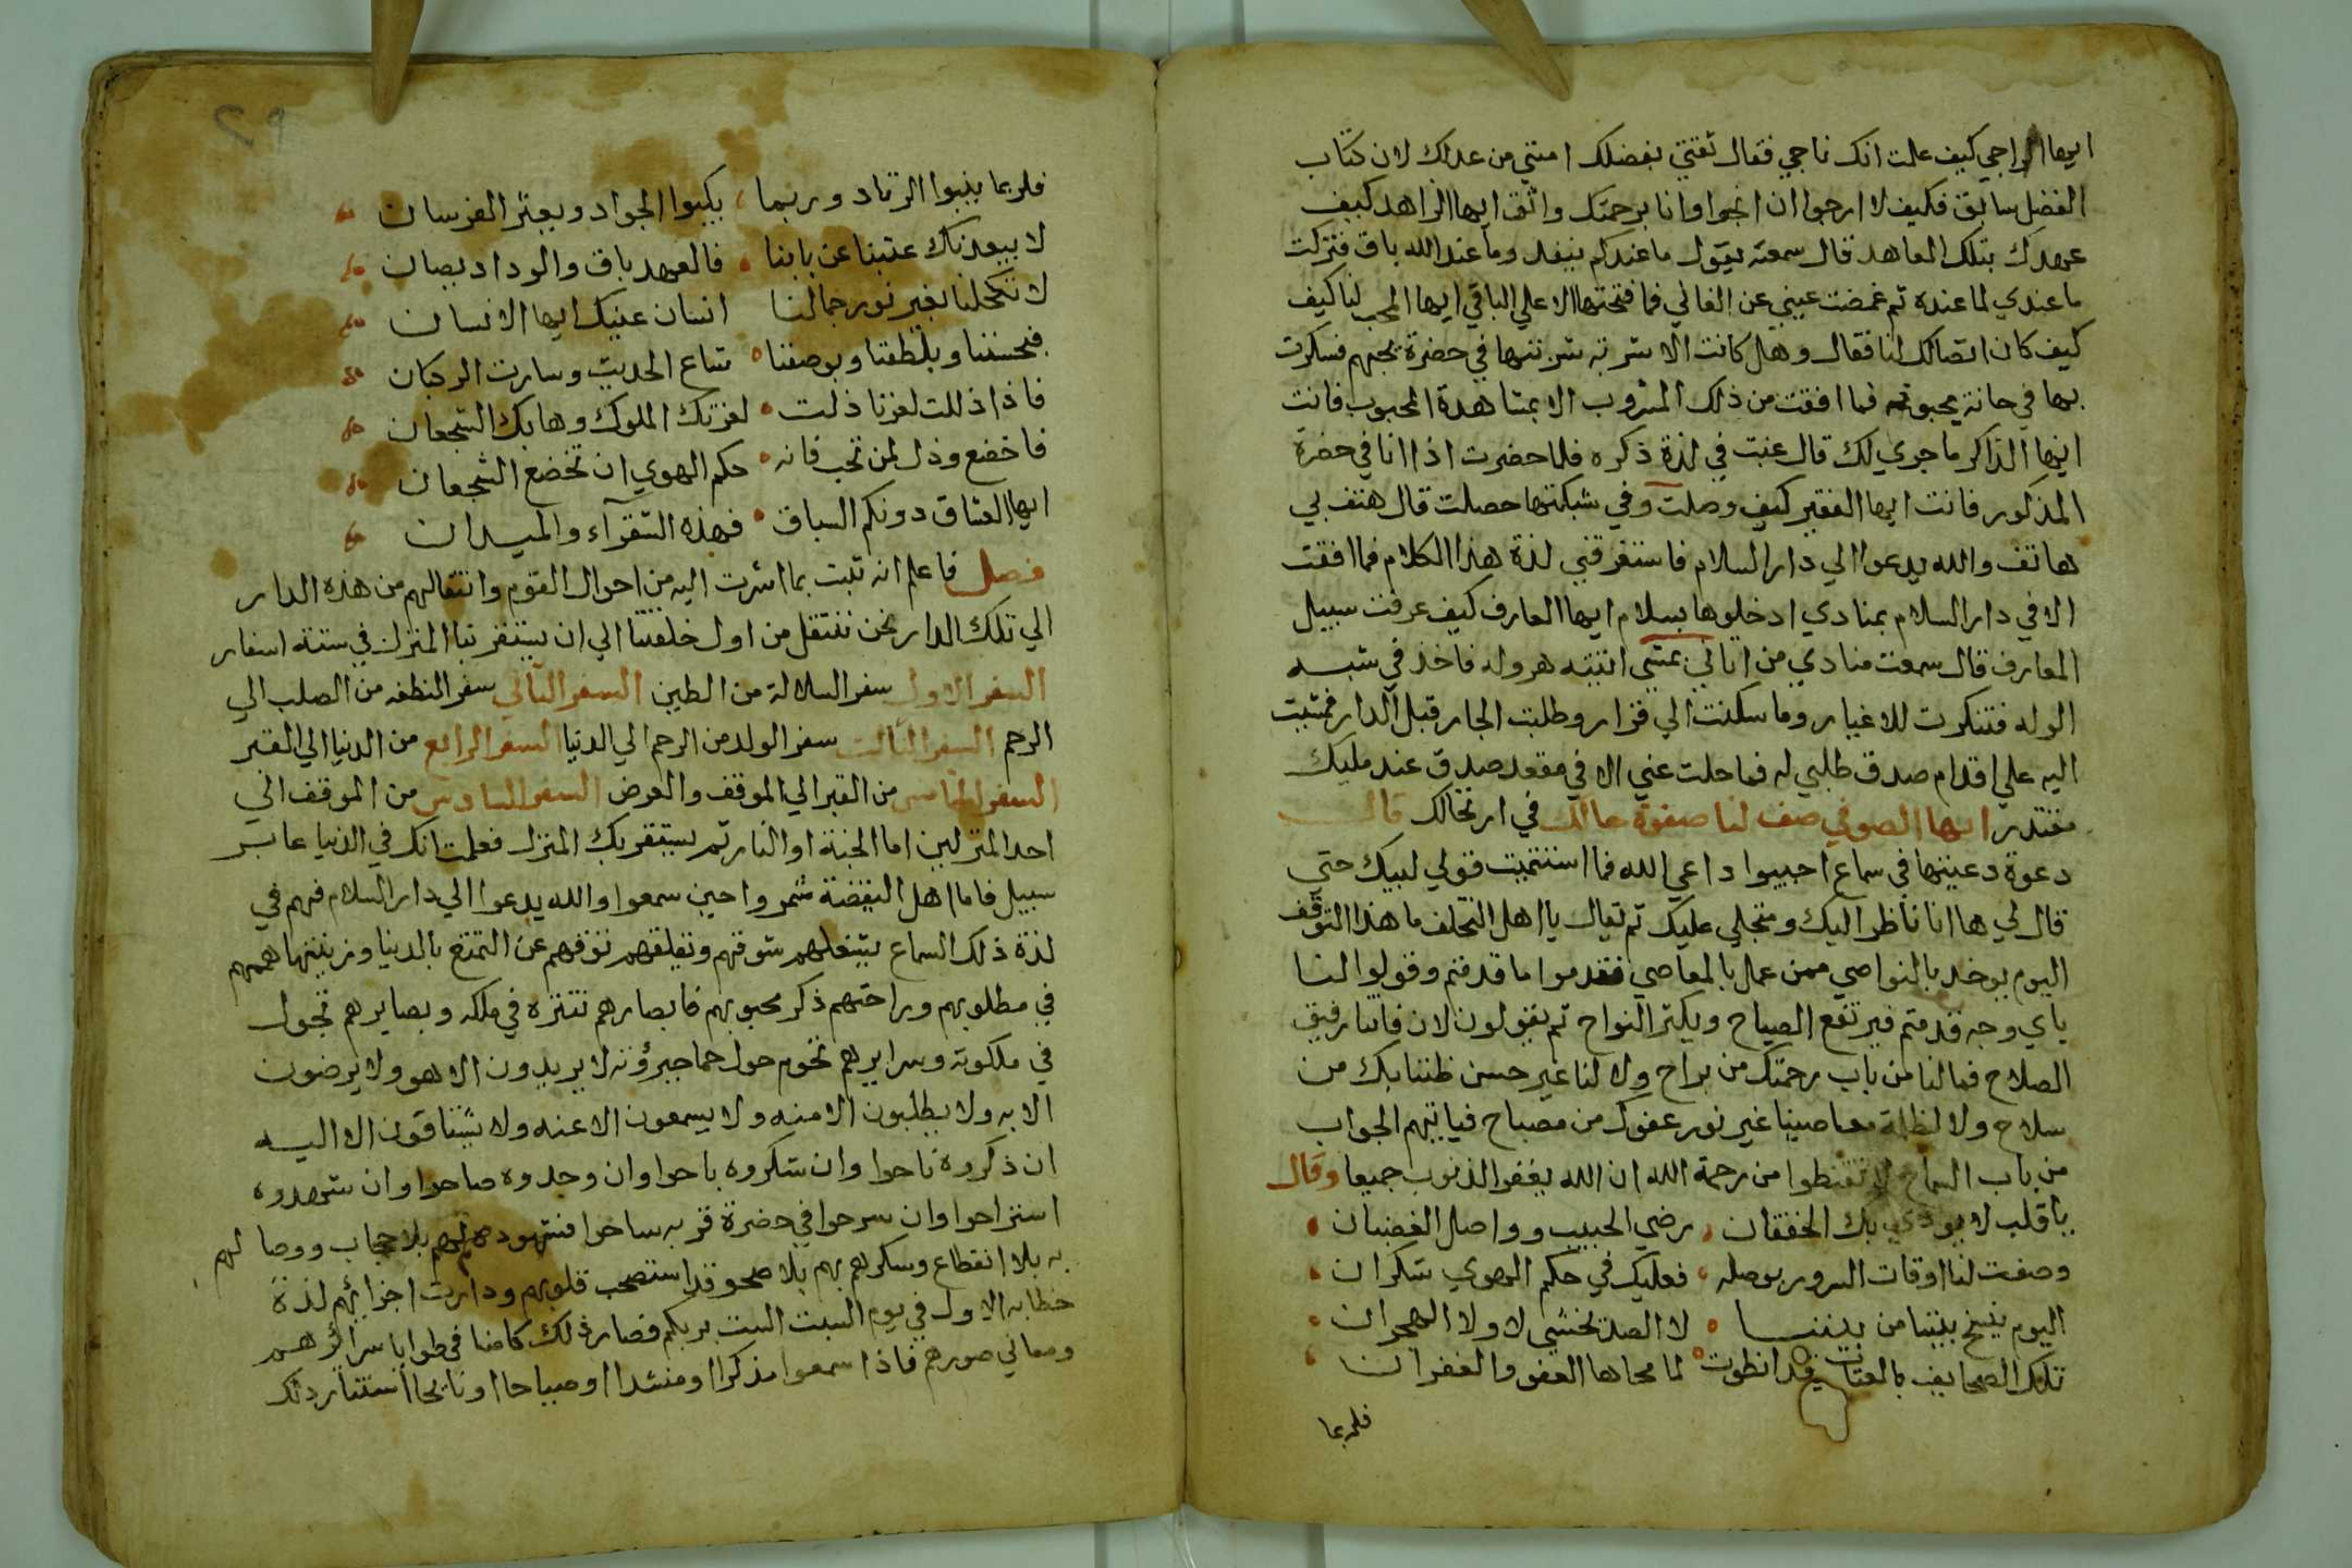 ايها الراجي كيف علمت انك ناجي فقال ثقتي بفضلك امنتني من عدلك لان كتاب
الفضل سابق فكيف لا ارجوا ان انجوا وانا برحمتك واثق ايها الزاهد كيف
عهدك بتلك المعاهد قال سمعته يقول ما عندكم ينفد وما عند الله باق فتركت
ما عندي لما عنده ثم غمضت عيني عن الفاني فما فتحتها الا علي الباقي ايها المحب لنا كيف
كيف كان اتصالك لنا فقال وهل كانت الا شربه شربتها في حضرة يحبهم فسكرت
بها في حانة يحبونه فما افقت من ذلك المشروب الا بمشاهدة المحبوب فانت
ايها الذاكر ما جري لك قال غبت في لذة ذكره فلما حضرت اذا انا في حضرة
المذكور فانت ايها الفقير كيف وصلت وفي شبكتها حصلت قال هتف بي
هاتف والله يدعوا الي دار السلام فاستغرقني لذة هذا الكلام فما افقت
الا في دار السلام بمنادي ادخلوها بسلام ايها العارف كيف عرفت سبيل
المعارف قال سمعت منادي من اتاني يمشي اتيته هروله فاخذ في شبه
الوله فتنكرت للاغيار وما سكنت الي قرار وطلبت الجار قبل الدار فمشيت
اليه علي اقدام صدق طلبي له فما حلت عني الا في مقعد صدق عند مليك
مقتدر ايها الصوفي صف لنا صفوة حالك في ارتحالك قال
دعوة دعيتها في سماع اجيبوا داعي الله فما استتممت قولي لبيك حتي
قال لي ها انا ناظر اليك ومتجلي عليك ثم يقال يا اهل التخلف ما هذا التوقف
اليوم يوخد بالنواصي ممن عمل بالمعاصي فقدموا ما قدمتم وقولوا لنا
باي وجه قدمتم فيرتفع الصياح ويكثر النواح ثم يقولون لان فاتنا رفيق
الصلاح فما لنا من باب رحمتك من براح ولا لنا غير حسن ظننا بك من
سلاح ولا لظلمة معاصينا غير نور عفوك من مصباح فياتيهم الجواب
من باب السماح لا تقنطوا من رحمة الله ان الله يغفر الذنوب جميعا وقال
يا قلب لا يودي بك الخفقان رضي الحبيب وواصل الغضبان
وصفت لنا اوقات السرور بوصله فعليك في حكم الهوي شكران
اليوم ينسخ بيننا من بيننا لا الصد نخشي لا ولا الهجران
تلك الصحايف بالعتاب قد انطوت لما محاها العفو والغفران
فلربما
فلربما ينبوا الزناد وربما يكبوا الجواد ويعثر الفرسان
لا يبعدنك عتبنا عن بابنا فالعهد باق والوداد يصان
لا تكحلنا بغير نور جمالنا انسان عينك ايها الانسان
فبحسننا وبلطفنا وبوصفنا شاع الحديث وسارت الركبان
فاذا ذللت لعزنا ذلت لعزتك الملوك وهابك الشجعان
فاخضع وذل لمن تحب فانه حكم الهوي ان تخضع الشجعان
ايها العشاق دونكم السباق فهذه الشقرآء والميدان
فصل فاعلم انه ثبت بما اشرت اليه من احوال القوم وانتقالهم من هذه الدار
الي تلك الدار نحن ننتقل من اول خلقتنا الي ان يستقر بنا المنزل في ستة اسفار
السفر الاول سفر السلالة من الطين السفر الثاني سفر النطفه من الصلب الي
الرحم السفر الثالث سفر الولد من الرحم الي الدنيا السفر الرابع من الدنيا الي القبر
السفر الخامس من القبر الي الموقف والعرض السفر السادس من الموقف الي
احد المنزلين اما الجنة او النار ثم يستقر بك المنزل فعلمت انك في الدنيا عابر
سبيل فاما اهل اليقضة شمروا حين سمعوا والله يدعوا الي دار السلام فهم في
لذة ذلك السماع يشغلهم شوقهم وتقلقهم توقهم عن التمتع بالدنيا وزينتها هممهم
في مطلوبهم وراحتهم ذكر محبوبهم فابصارهم تتنزه في ملكه وبصايرهم تجول
في ملكوته وسرايرهم تحوم حول حما جبرؤته لا يريدون الا هو ولا يرضون
الا به ولا يطلبون الا منه ولا يسمعون الا عنه ولا يشتاقون الا اليه
ان ذكروه ناحوا وان شكروه باحوا وان وجدوه صاحوا وان شهدوه
استراحوا وان سرحوا في حضرة قربه ساحوا فشهودهم لهم بلا حجاب ووصالهم
به بلا انقطاع وسكرهم بهم بلا صحو قد استصحب قلوبهم ودارت اجزائهم لذة
خطابه الاول في يوم الست الست بربكم فصار ذلك كامنا في طوايا سرائرهم
ومعاني صورهم فاذا سمعوا مذكرا او منشدا او صياحا او نايحا استثار ذلك